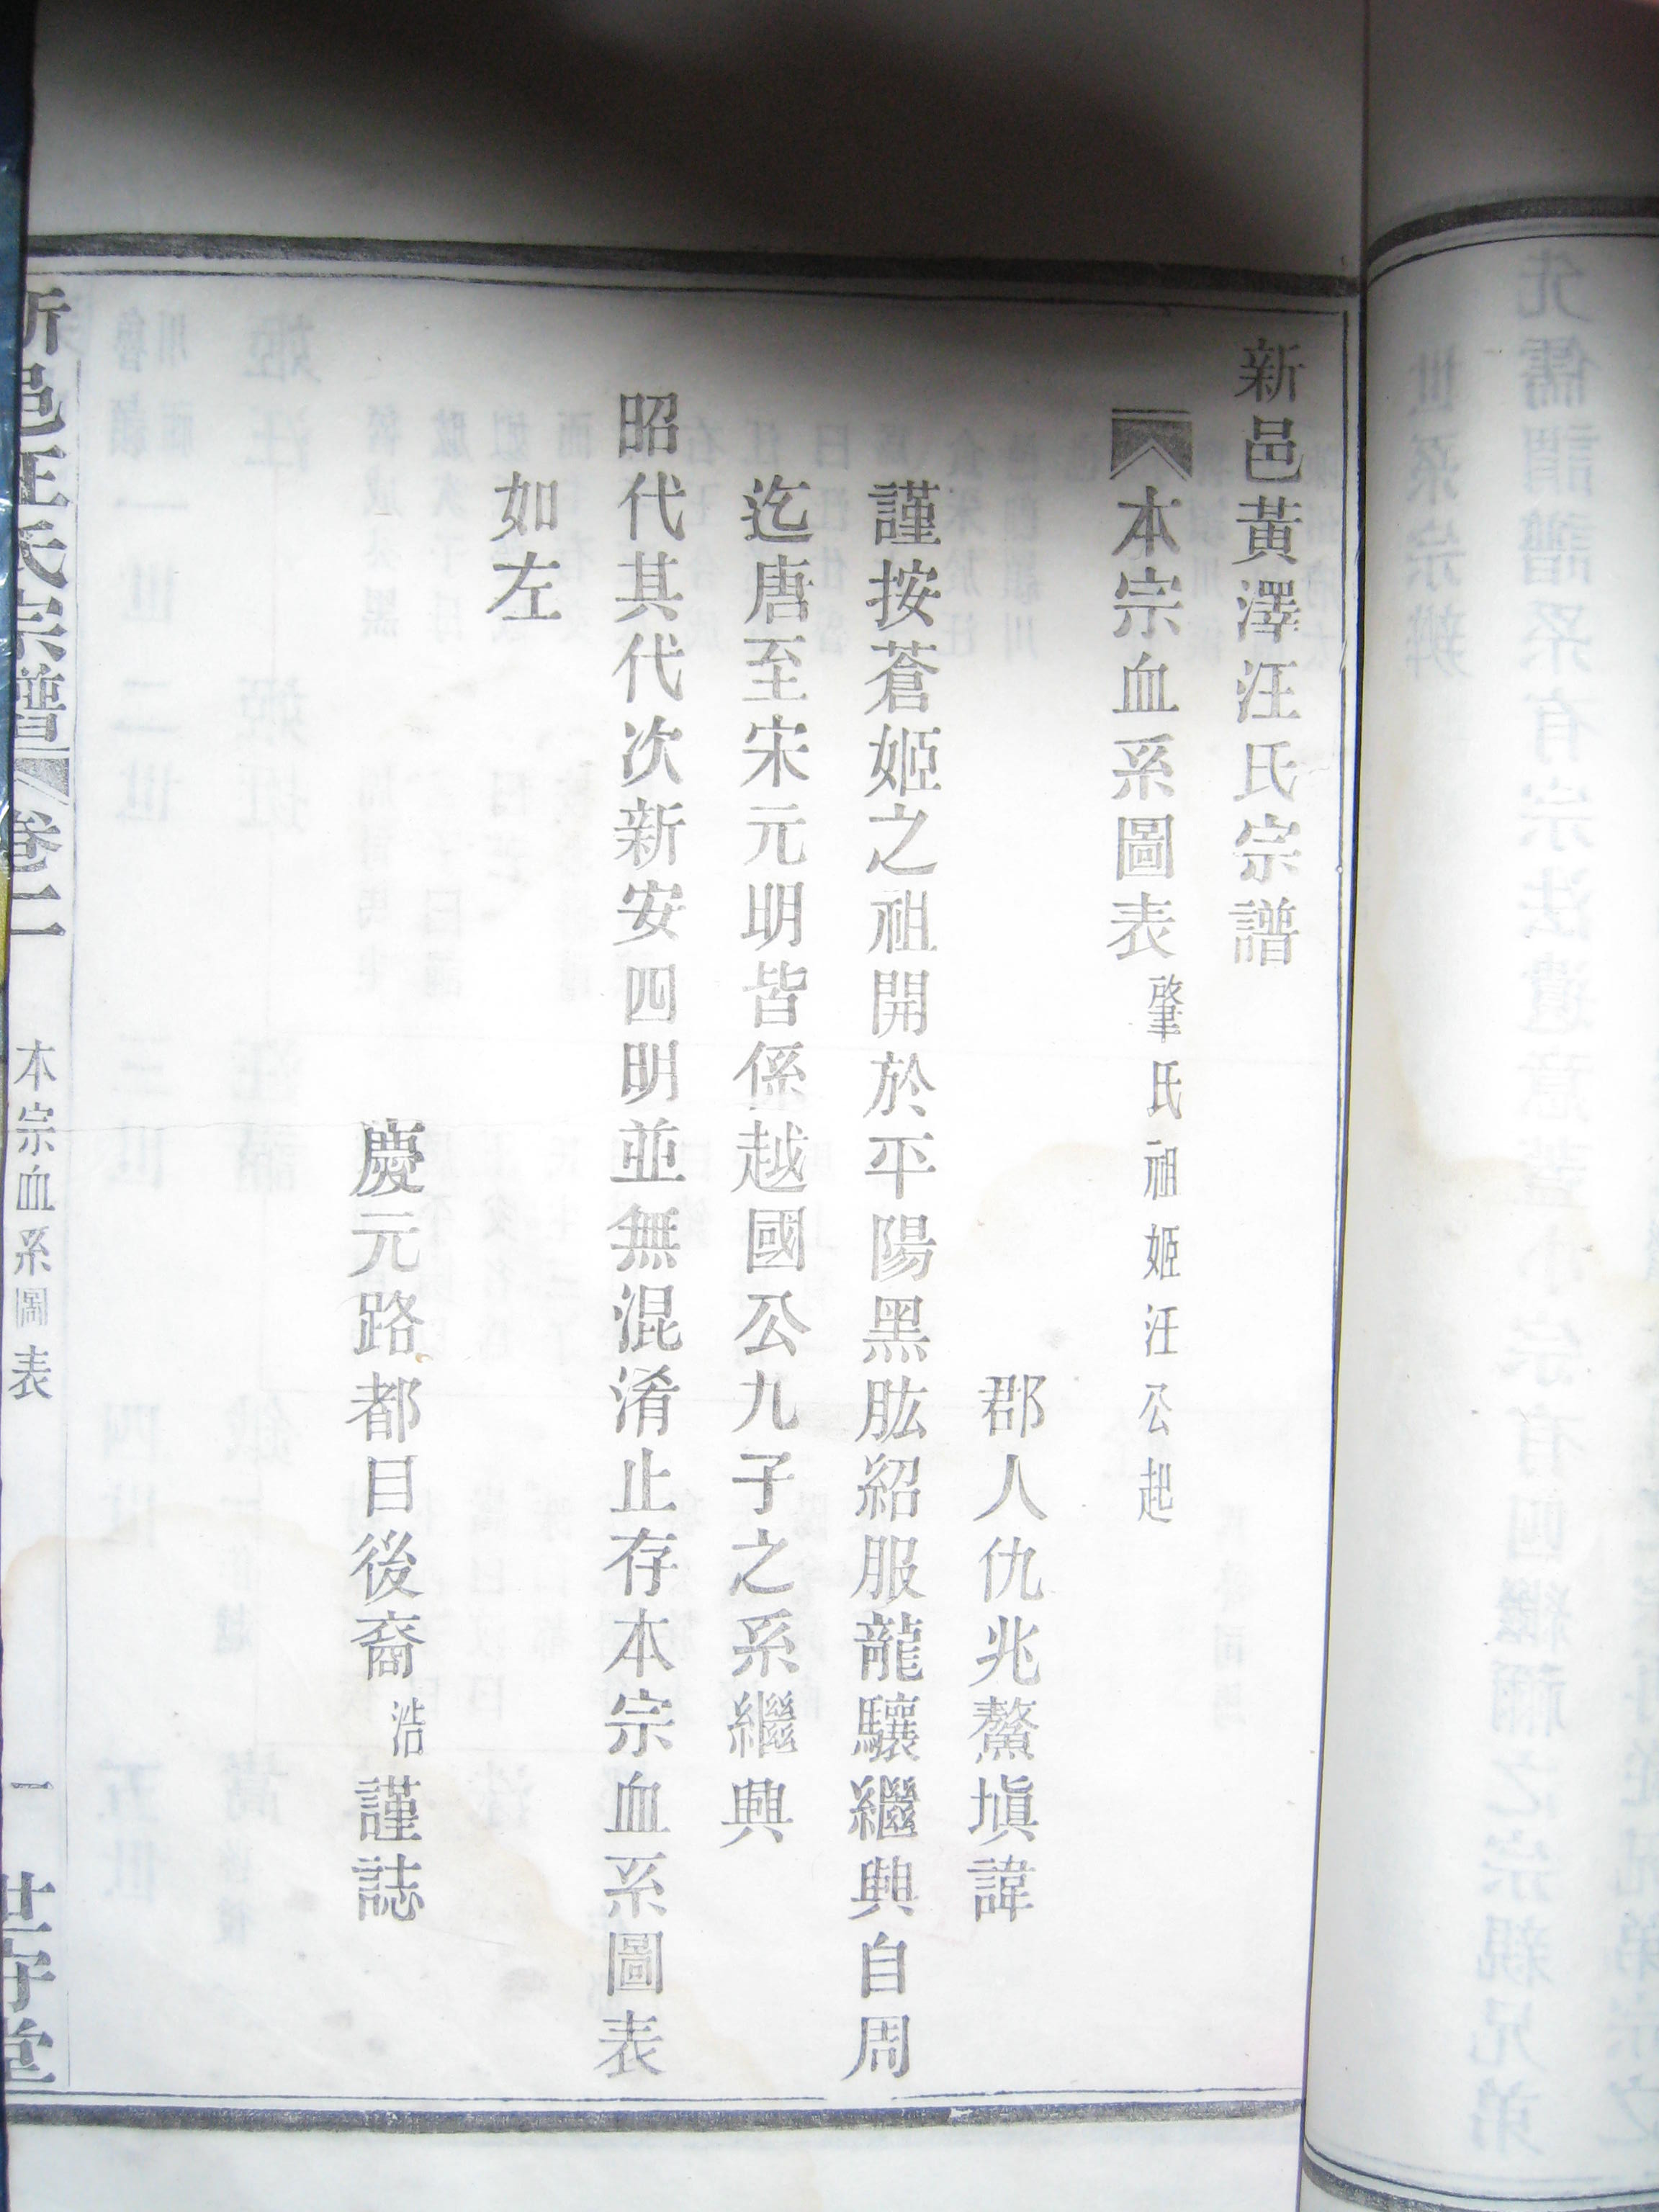 新邑黃澤汪氏宗譜
本宗血系圖表 肇氏祖姬汪公起
郡人仇兆鰲塡諱
謹按蒼姬之祖開於平陽黑肱紹服龍驤繼興自周
迄唐至宋元明皆係越國公九子之系繼興
昭代其代次新安四明並無混淆止存本宗血系圖表
如左
慶元路都目後裔浩謹誌
新邑汪氏宗譜 卷二 本宗血系圖表 一 世守堂